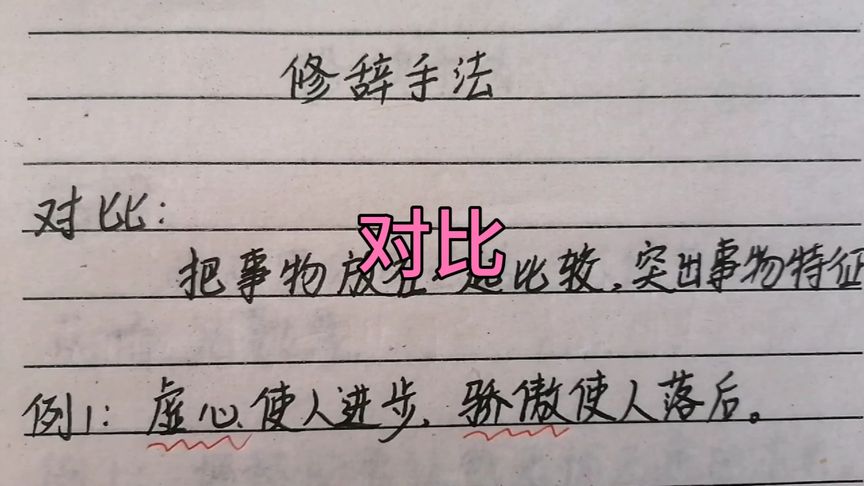 修辞手法
对比：
对比
把事物放在 起比较，突出事物特征
例1：虚心使人进步，骄傲使人落后。